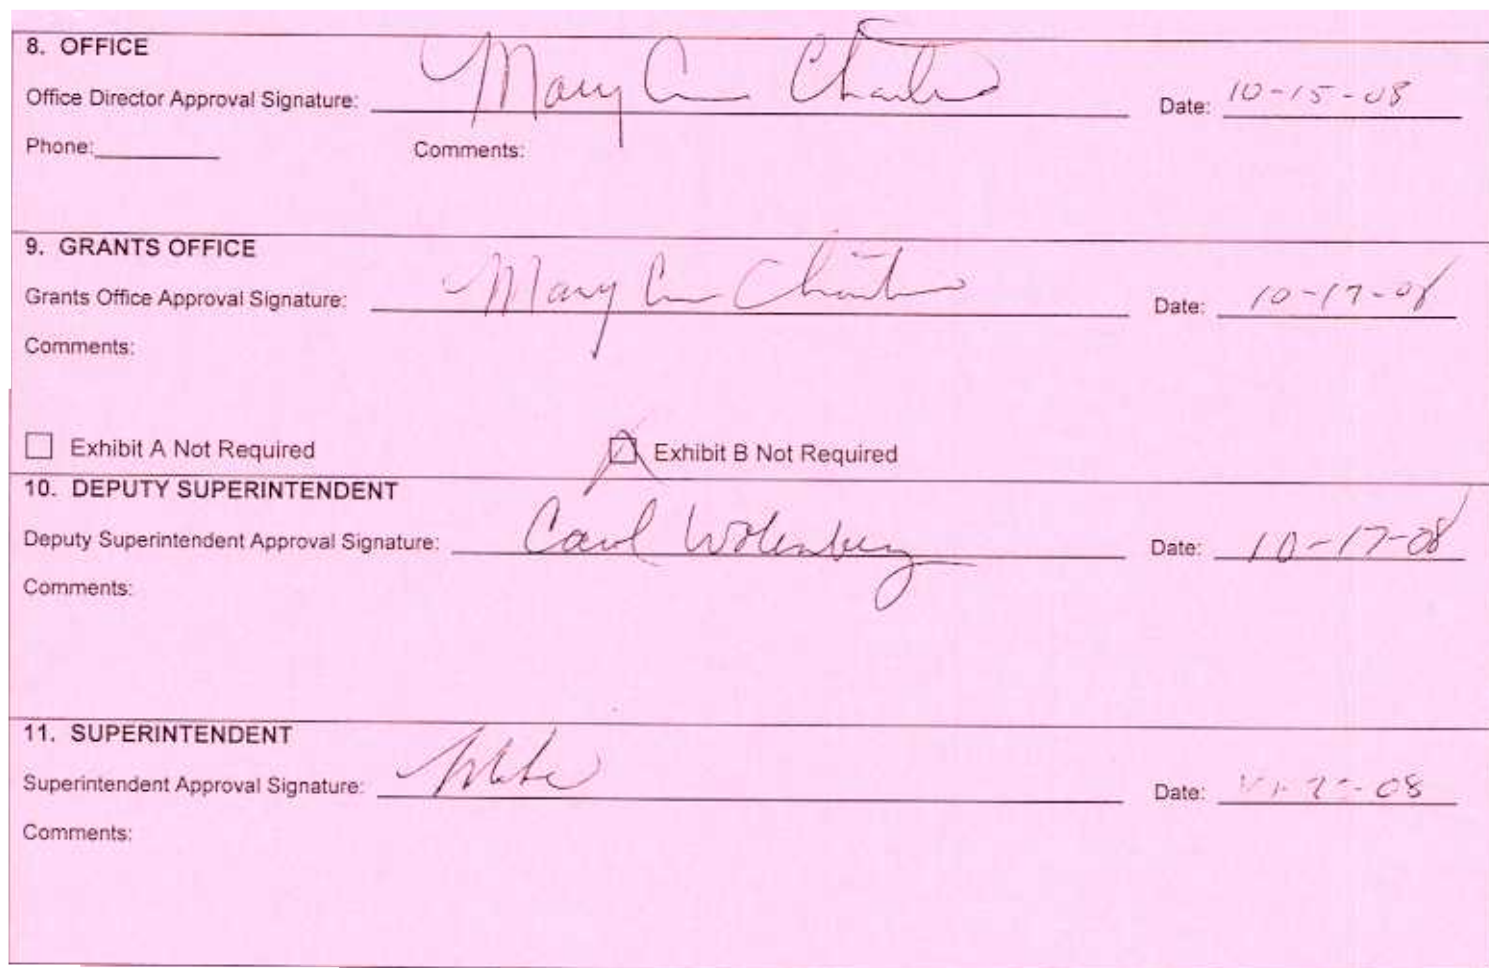 8. OFFICE
Office Director Approval Signature: Mary Ann Date: 10-15-08
Phone: Comments:
9. GRANTS OFFICE
Grants Office Approval Signature: Mary Ann Date: 10-17-08
Comments:
Exhibit A Not Required Exhibit B Not Required
10. DEPUTY SUPERINTENDENT
Deputy Superintendent Approval Signature: Carol Wolenberg Date: 10-17-08
Comments:
11. SUPERINTENDENT
Superintendent Approval Signature: Date:
Comments: